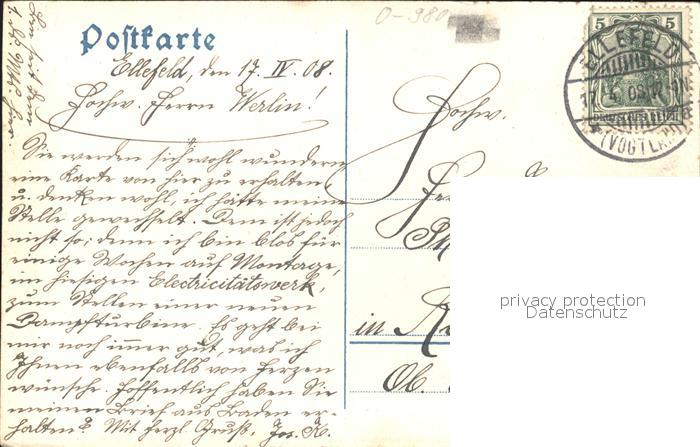 Postkarte
Ellefeld, den 17. IV. 08.
Hochw. Herrn Werlin!
Sie werden sich wohl wundern
eine Karte von hier zu erhalten,
u. denken wohl, ich hätte meine
Stelle gewechselt. Dem ist jedoch
nicht so; denn ich bin blos für
einige Wochen auf Montage,
im hiesigen Electricitätswerk,
zum Stellen einer neuen
Dampfturbine. Es geht bei
mir noch immer gut, was ich
Ihnen ebenfalls von Herzen
wünsche. Hoffentlich haben Sie
meinen Brief aus Baden er-
halten? Mit herzl. Gruß, Jos. K.
0-980
5 5
DEUTSCHES REICH
ELLEFELD
(VOGTL.)
Hochw.
in
Ob.
privacy protection
Datenschutz